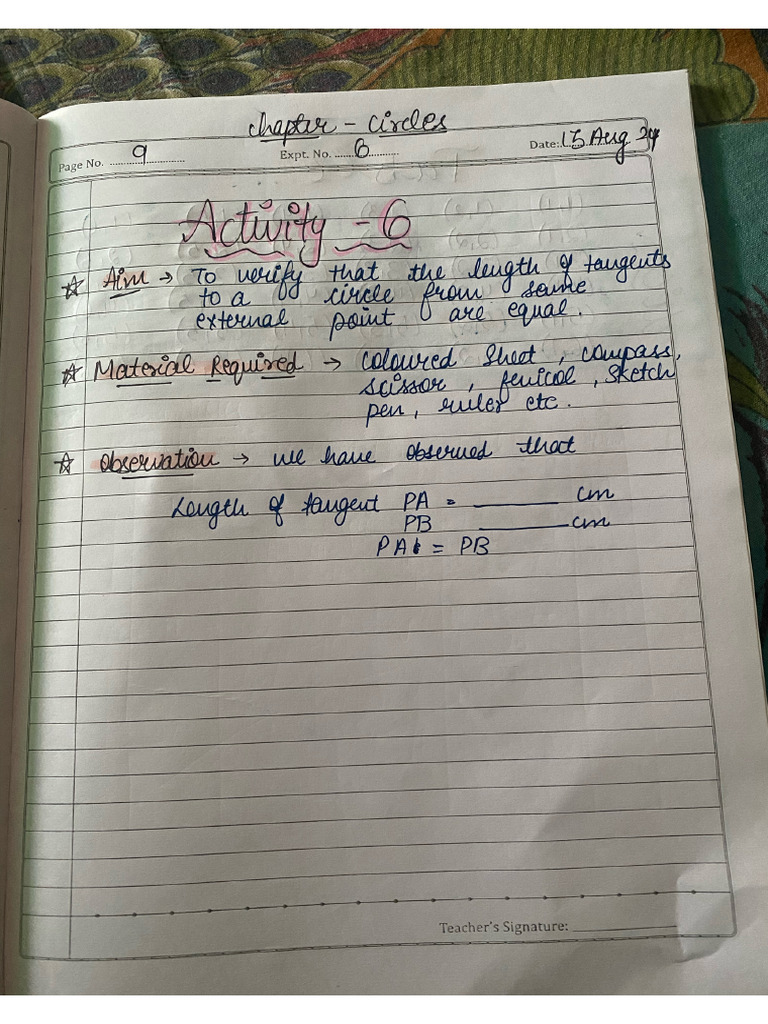 Chapter - Circles
Page No. 9 Expt. No. 6 Date: 13 Aug 24
Activity - 6
☆ Aim → To verify that the length of tangents
to a circle from same
external point are equal.
☆ Material Required → coloured sheet, compass,
scissor, fenicol, sketch
pen, ruler etc.
☆ Observation → we have observed that
Length of tangent PA = ________ cm
PB ________ cm
PA = PB
Teacher's Signature: ________